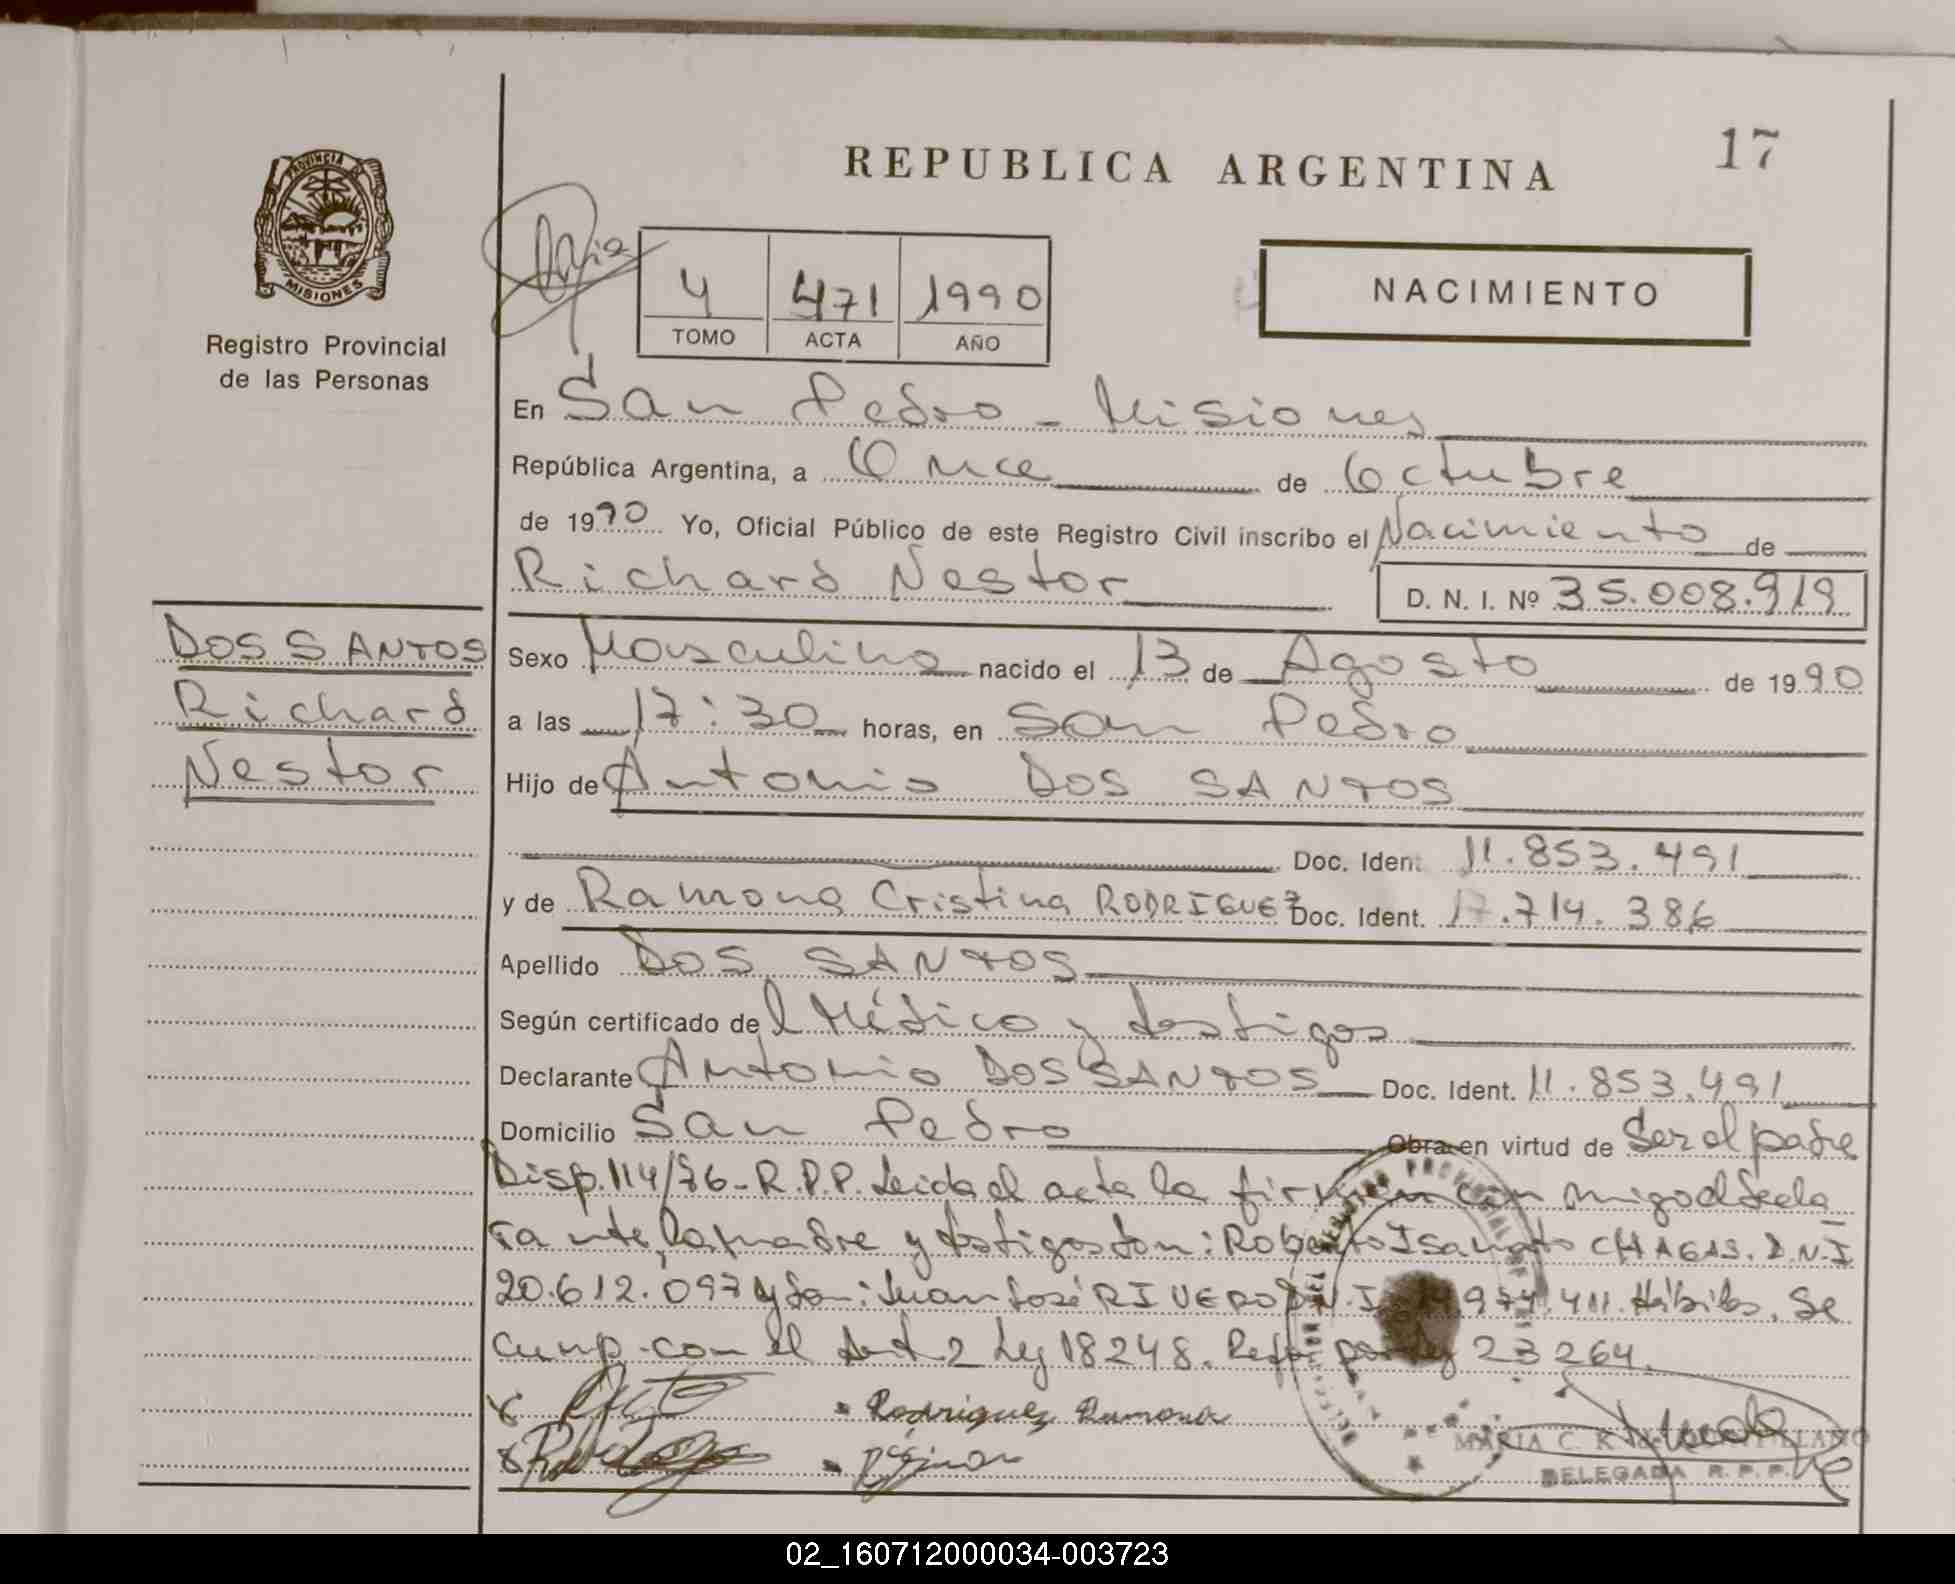 REPUBLICA ARGENTINA
17
PROVINCIA DE
MISIONES
Registro Provincial
de las Personas
4 471 1990
TOMO ACTA AÑO
NACIMIENTO
En San Pedro - Misiones
República Argentina, a Once de Octubre
de 1990 Yo, Oficial Público de este Registro Civil inscribo el Nacimiento de
Richard Nestor D. N. I. Nº 35.008.919
DOS SANTOS
Richard
Nestor
Sexo Masculino nacido el 13 de Agosto de 1990
a las 17:30 horas, en San Pedro
Hijo de Antonio DOS SANTOS
Doc. Ident. 11.853.491
y de Ramona Cristina RODRIGUEZ Doc. Ident. 17.714.386
Apellido DOS SANTOS
Según certificado del Médico y testigos
Declarante Antonio DOS SANTOS Doc. Ident. 11.853.491
Domicilio San Pedro Obra en virtud de Ser el padre
Disp. 114/76-R.P.P. Leida el acta la firman con migo el decla
rante, la madre y testigos Don: Roberto CHAGAS. D.N.I
20.612.097 y Don: Juan José RIVERO D.N.I. 974.411. Hábiles. Se
Cump. con el Art. 2 Ley 18248. Ref. por Ley 23264.
Rodriguez Ramona
MARIA C. K
DELEGADA R. P. P.
02_160712000034-003723